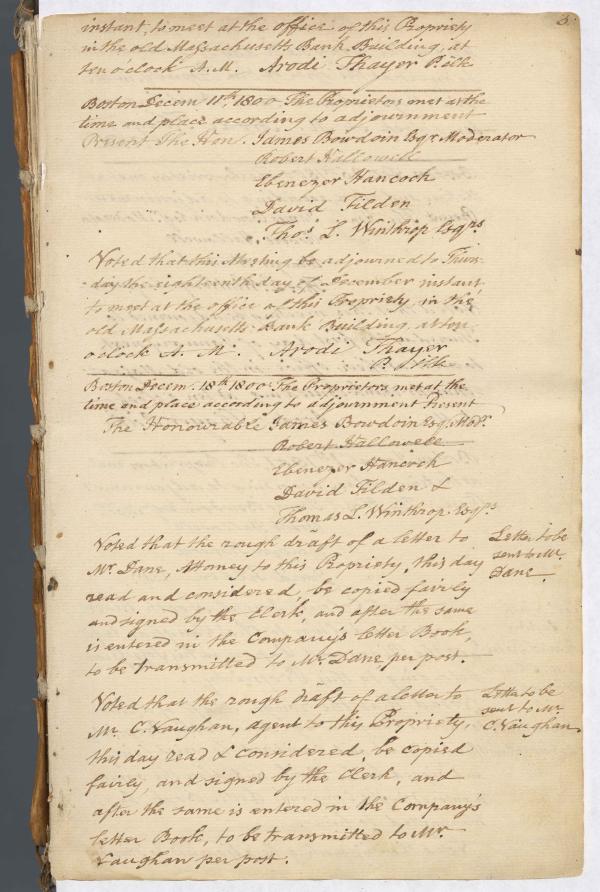 3.
instant, to meet at the office of this Propriety
in the old Massachusetts Bank Building, at
ten o'clock A.M. Arodi Thayer P. clk
Boston Decem. 11th. 1800 The Proprietors met at the
time and place according to adjournment
Present The Hon. James Bowdoin Esqr. Moderator
Robert Hallowell
Ebenezer Hancock
David Tilden
Thos. L. Winthrop Esqrs
Voted that this Meeting be adjourned to Thurs-
-day the eighteenth day of December instant
to meet at the office of this Propriety in the
old Massachusetts Bank Building, at ten
o'clock A. M. Arodi Thayer
P. Clk
Boston Decem. 18th. 1800 The Proprietors met at the
time and place according to adjournment Present
The Honourable James Bowdoin Esq. Modr.
Robert Hallowell
Ebenezer Hancock
David Tilden &
Thomas L. Winthrop Esqrs
Voted that the rough draft of a letter to
Mr. Dane, Attorney to this Propriety, this day
read and considered, be copied fairly
and signed by the Clerk, and after the same
is entered in the Company's letter Book,
to be transmitted to Mr. Dane per post.
Letter to be
sent to Mr.
Dane.
Voted that the rough draft of a letter to
Mr. C. Vaughan, agent to this Propriety,
this day read & considered, be copied
fairly, and signed by the Clerk, and
after the same is entered in the Company's
letter Book, to be transmitted to Mr.
Vaughan per post.
Letter to be
sent to Mr.
C. Vaughan